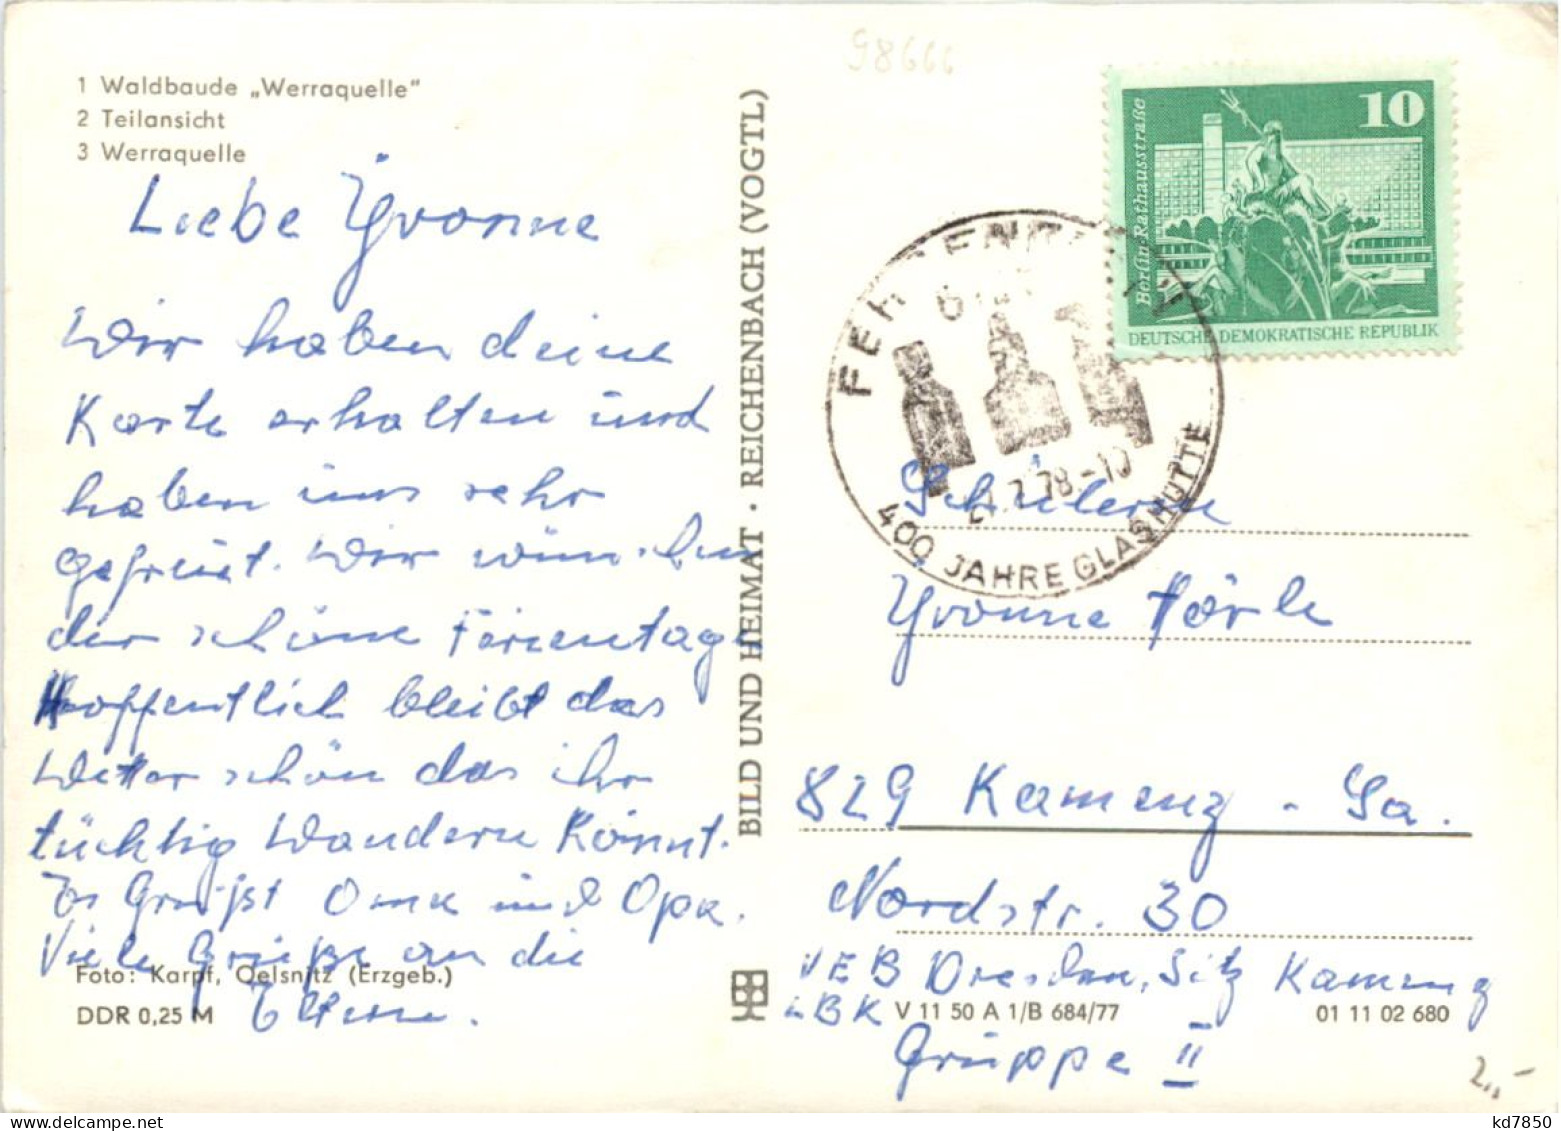 98666
1 Waldbaude „Werraquelle"
2 Teilansicht
3 Werraquelle
Liebe Yvonne
Wir haben deine
Karte erhalten und
haben uns sehr
gefreut. Wir wünschen
dir schöne Ferientage
Hoffentlich bleibt das
Wetter schön das ihr
tüchtig Wandern Könnt.
Es Grüßt Oma und Opa.
Viele Grüße an die
Eltern.
Foto: Karpf, Oelsnitz (Erzgeb.)
DDR 0,25 M
BILD UND HEIMAT · REICHENBACH (VOGTL)
10
Berlin-Rathausstraße
DEUTSCHE DEMOKRATISCHE REPUBLIK
78-10
400 JAHRE GLASHÜTTE
Schülerin
Yvonne
829 Kamenz - Sa.
Nordstr. 30
VEB Dresden, Sitz Kamenz
BK
Gruppe II
V 11 50 A 1/B 684/77
01 11 02 680
2,-
kd7850